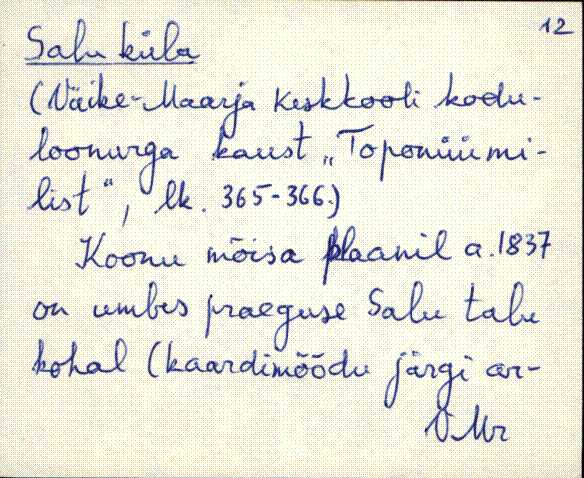 12
Salu küla
(Väike-Maarja Keskkooli kodu-
loonurga kaust „Toponüümi-
list“, lk. 365-366.)
Koonu mõisa plaanil a. 1837
on umbes praeguse Salu talu
kohal (kaardimõõdu järgi ar-
VMr